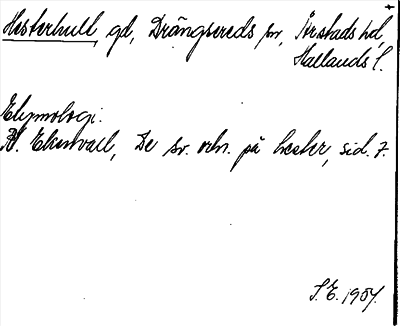 Hesterhull, gd, Drängsereds sn, Årstads hd,
Hallands l.
Etymologi:
R. Ekenvall, De sv. ortn. på hester, sid. 7.
S.E. 1957.